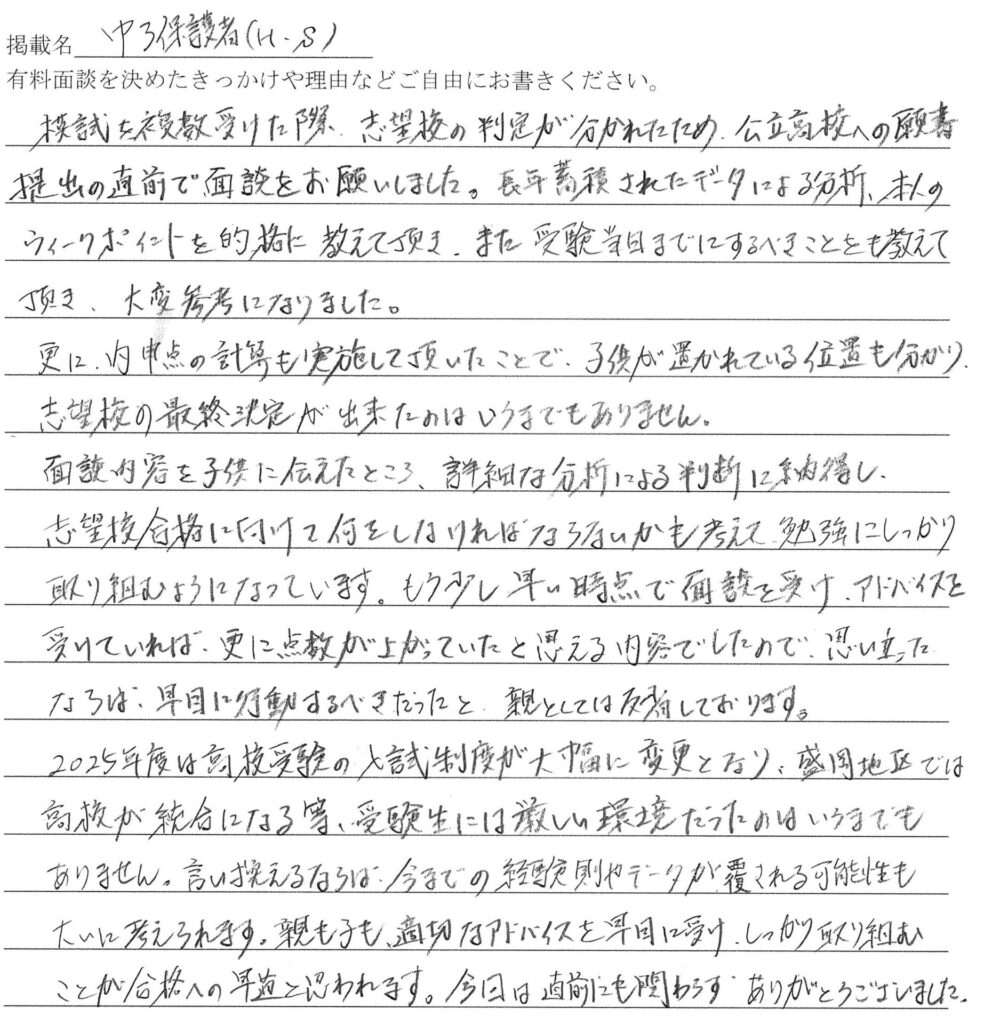 掲載名 中3保護者(H.S)
有料面談を決めたきっかけや理由などご自由にお書きください。
模試を複数受けた際、志望校の判定が分かれたため、公立高校への願書
提出の直前で面談をお願いしました。長年蓄積されたデータによる分析、本人の
ウィークポイントを的格に教えて頂き、また受験当日までにするべきことをも教えて
頂き、大変参考になりました。
更に、内申点の計算も実施して頂いたことで、子供が置かれている位置も分かり、
志望校の最終決定が出来たのはいうまでもありません。
面談内容を子供に伝えたところ、詳細な分析による判断に納得し、
志望校合格に向けて何をしなければならないかも考えて、勉強にしっかり
取り組むようになっています。もう少し早い時点で面談を受け、アドバイスを
受けていれば、更に点数が上がっていたと思える内容でしたので、思い立った
ならば、早目に行動するべきだったと、親としては反省しております。
2025年度は高校受験の入試制度が大幅に変更となり、盛岡地区では
高校が統合になる等、受験生には厳しい環境だったのはいうまでも
ありません。言い換えるならば、今までの経験則やデータが覆される可能性も
大いに考えられます。親も子も、適切なアドバイスを早目に受け、しっかり取り組む
ことが合格への早道と思われます。今回は直前にも関わらず ありがとうございました。